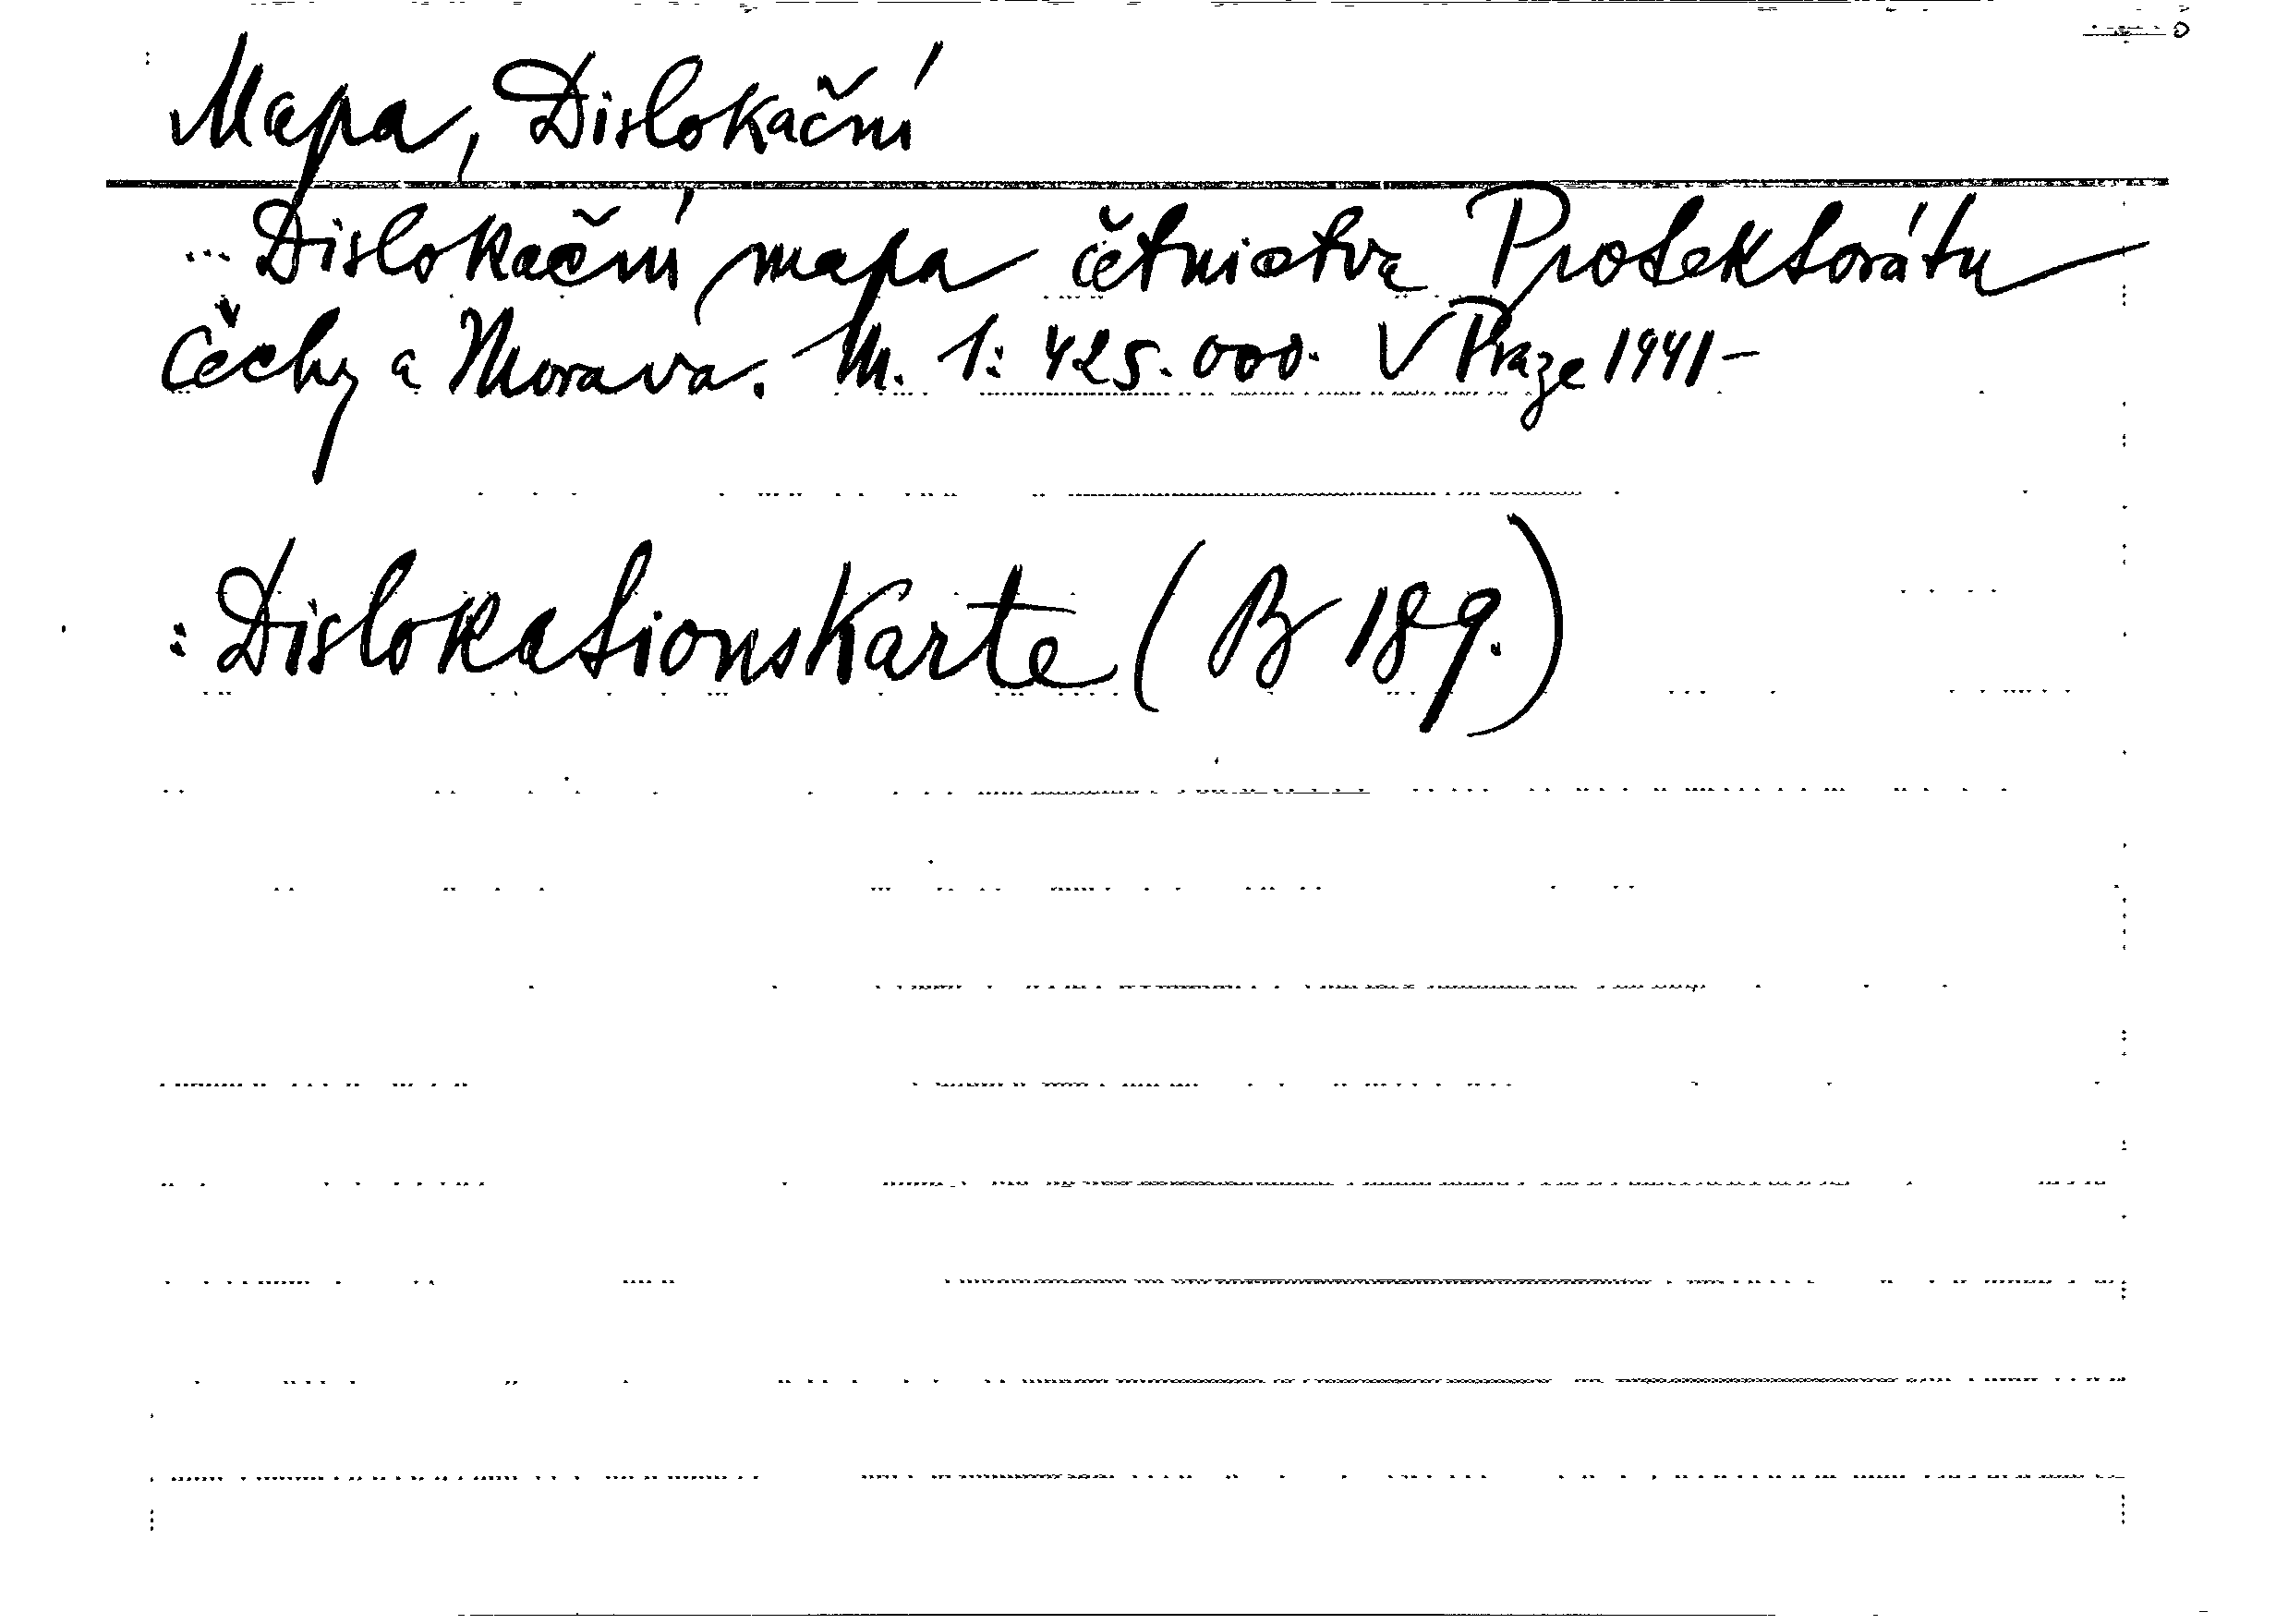 Mapa, Dislokační
... Dislokační mapa četnictva Protektorátu
Čechy a Morava. M. 1: 425.000. V Praze 1941-
: Dislokationskarte (B 189.)